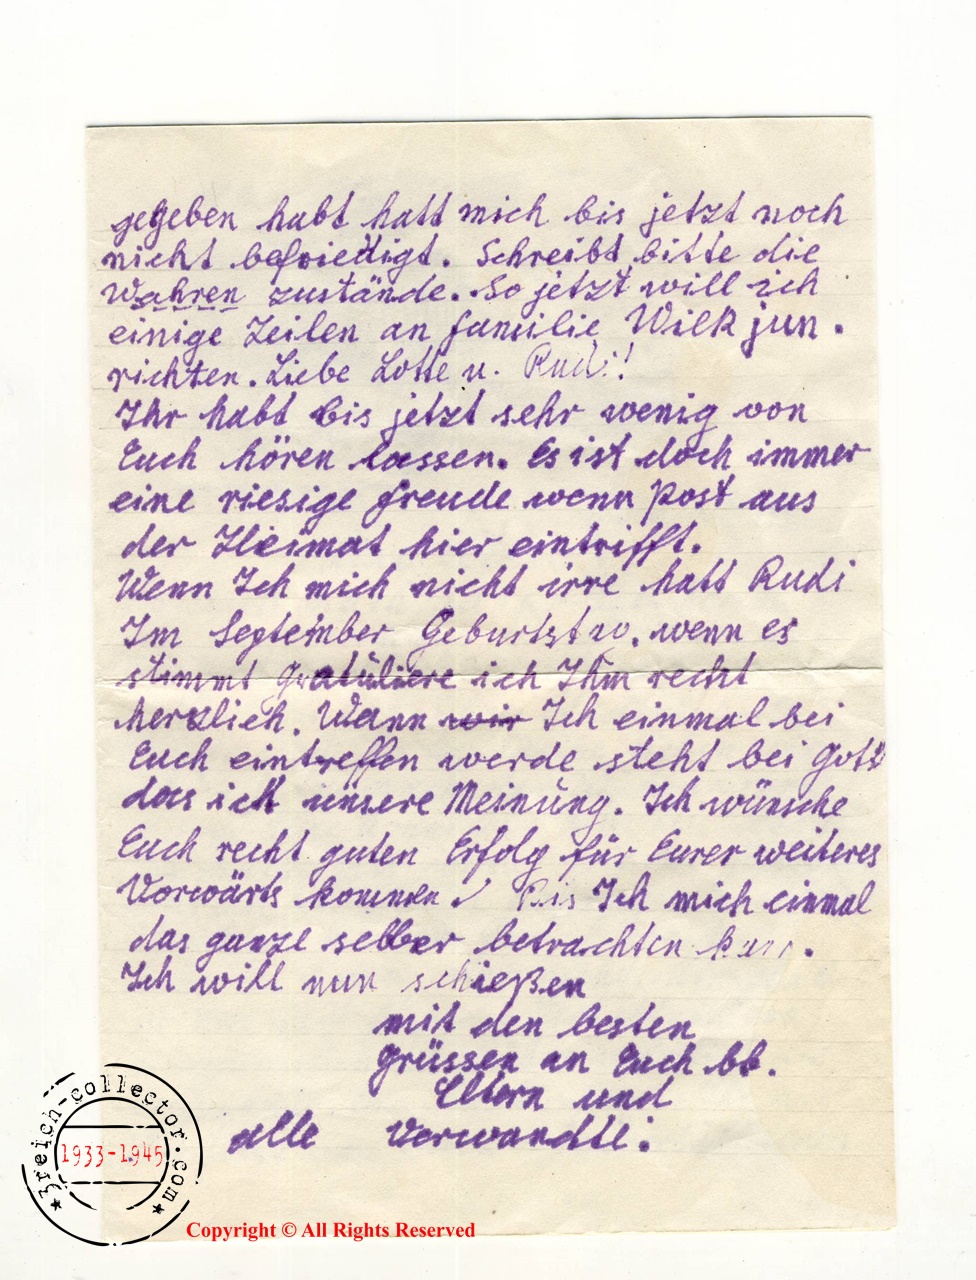 gegeben habt hatt mich bis jetzt noch
nicht befriedigt. Schreibt bitte die
Wahren zustände. So jetzt will ich
einige Zeilen an familie Wilk jun.
richten. Liebe Lotte u. Rudi!
Ihr habt bis jetzt sehr wenig von
Euch hören lassen. Es ist doch immer
eine riesige freude wenn post aus
der Heimat hier eintrifft.
Wenn Ich mich nicht irre hatt Rudi
Im September wenn es
stimmt Gratuliere ich Ihm recht
herzlich. Wann wir Ich einmal bei
Euch eintreffen werde steht bei Gott
das ich unsere Meinung. Ich wünsche
Euch recht guten Erfolg für Eurer weiteres
Vorwärts kommen! Bis Ich mich einmal
das ganze selber betrachten kann.
Ich will nun schießen
mit den besten
Grüssen an Euch bb.
Eltern und
alle Verwandte.
3reich-collector.com
1933-1945
Copyright © All Rights Reserved